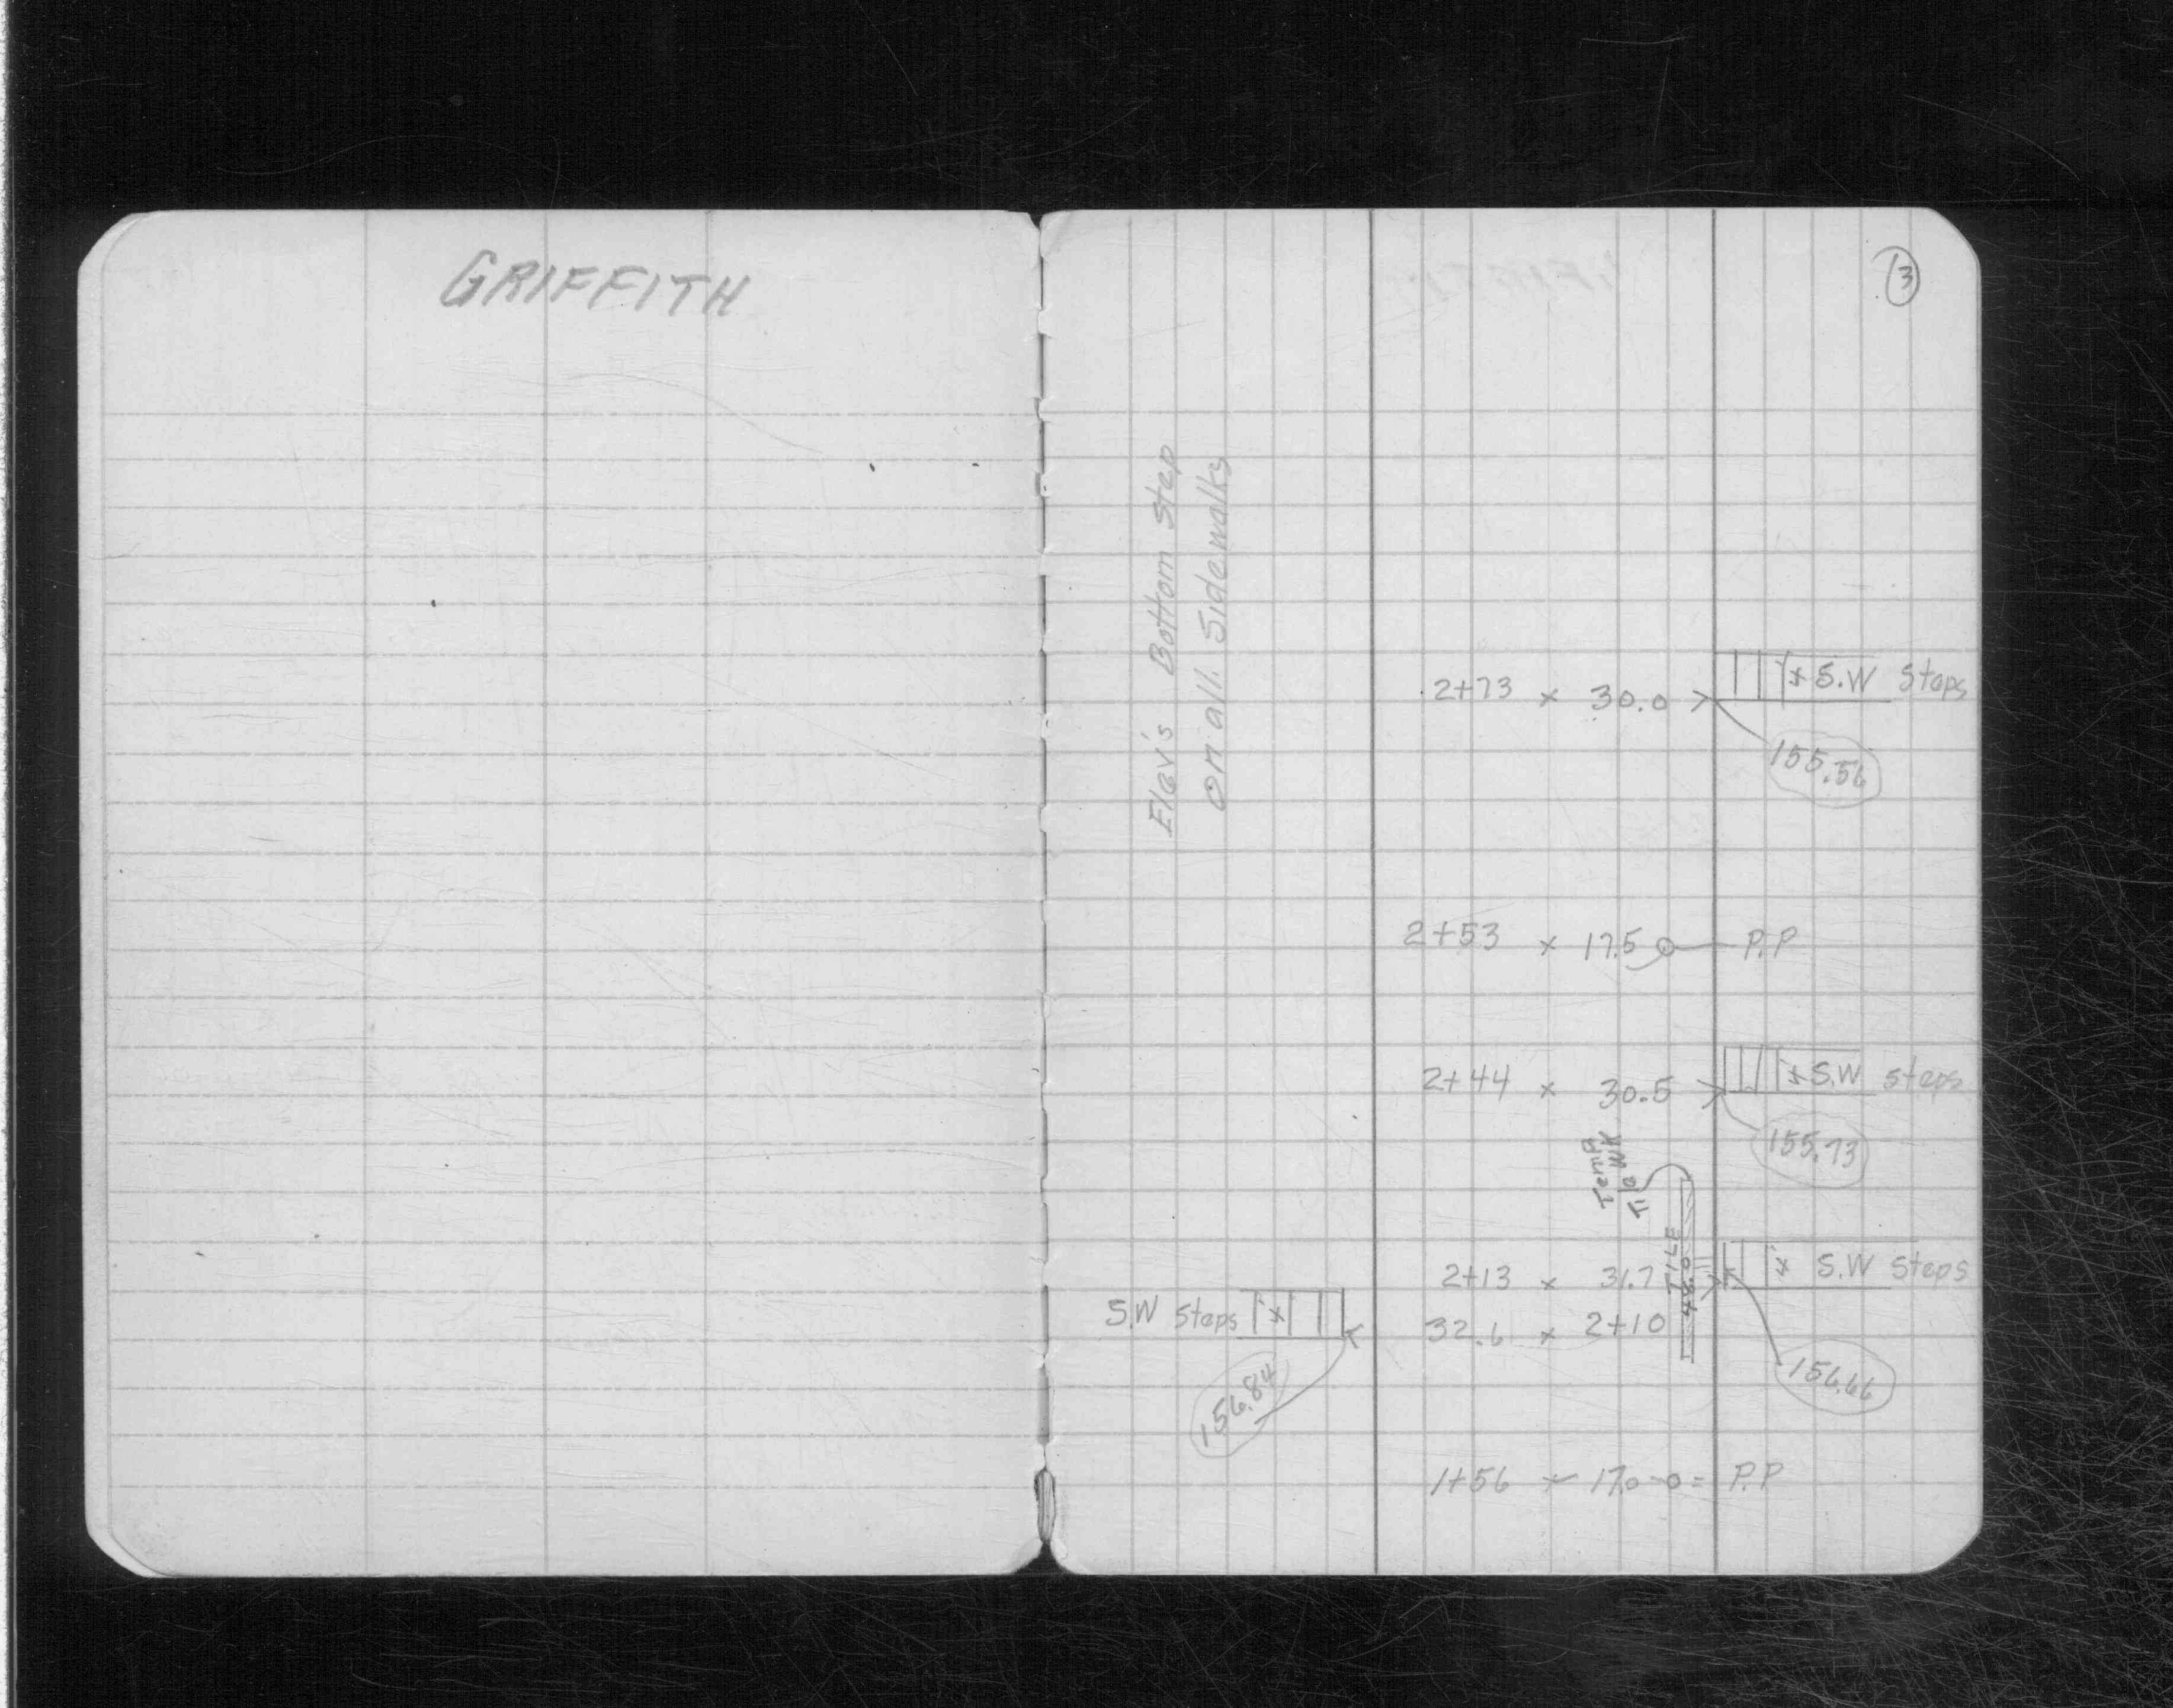 GRIFFITH
13
Elev's Bottom Step
on all Sidewalks
2+73 x 30.0 > x S.W Steps
155.56
2+53 x 17.5 P.P
2+44 x 30.5 > x S.W Steps
155.73
Temp
TILE
48.0
2+13 x 31.7 > x S.W Steps
S.W Steps x 32.6 x 2+10
156.84
156.66
1+56 x 17.0 P.P